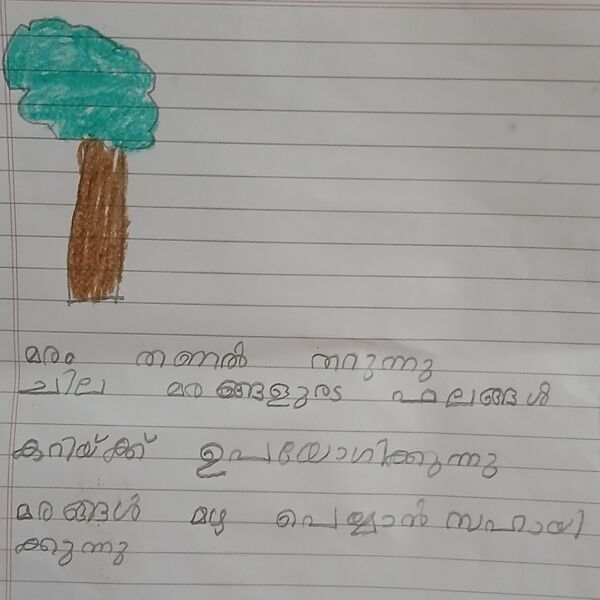 മരം തണൽ തറുന്നു
ചില മരങ്ങളുടെ ഫലങ്ങൾ
കറിയ്ക്ക് ഉപയോഗിക്കുന്നു
മരങ്ങൾ മഴ പെയ്യാൻ സഹായി
ക്കുന്നു